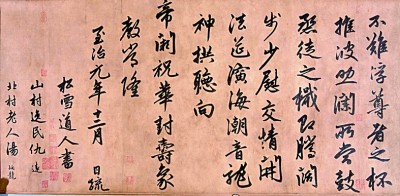 不難浮尊者之杯
推波助瀾所當鼓
徒之檝即騰闊
步少慰交情開
法筵演海潮音龍
神拱聽向
帝闕祝華封壽象
教常隆
至治元年十二月 日疏
松雪道人書
山村逸民仇遠
北村老人湯炳龍